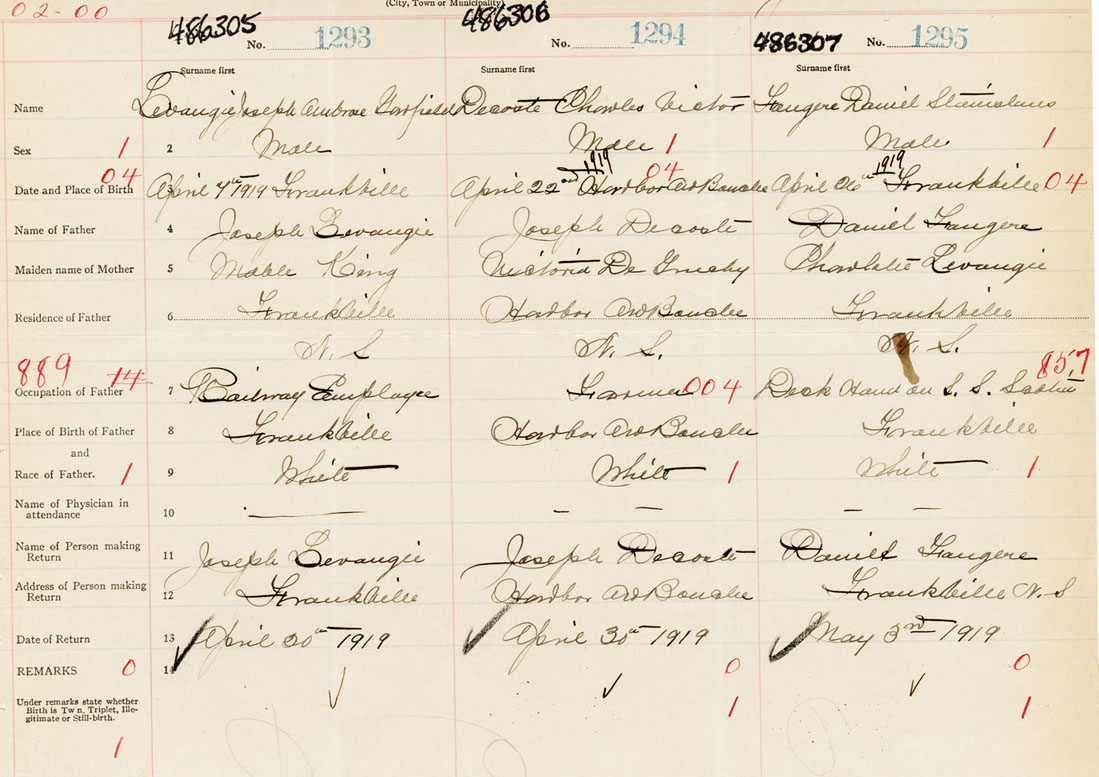 02-00
(City, Town or Municipality)
486305 No. 1293 486306 No. 1294 486307 No. 1295
Surname first Surname first Surname first
Name Levangie Joseph Ambrose Garfield Decoste Charles Victor Fangere Daniel Stanislaus
Sex 1 2 Male Male 1 Male 1
04 1919 04 1919
Date and Place of Birth 3 April 4th 1919 Frankville April 22nd Harbor Au Bouche April 26th Frankville 04
Name of Father 4 Joseph Levangie Joseph Decoste Daniel Fangere
Maiden name of Mother 5 Mable King Victoria De Gruchy Charlotte Levangie
Residence of Father 6 Frankville Harbor Au Bouche Frankville
N. S N. S. N. S.
889 14 857
Occupation of Father 7 Railway Employee Farmer 004 Deck Hand on S. S. Scotia
Place of Birth of Father 8 Frankville Harbor Au Bouche Frankville
and
Race of Father. 1 9 White White 1 White 1
Name of Physician in
attendance 10 — — — — —
Name of Person making
Return 11 Joseph Levangie Joseph Decoste Daniel Fangere
Address of Person making
Return 12 Frankville Harbor Au Bouche Frankville N. S
Date of Return 13 April 30th 1919 April 30th 1919 May 3rd 1919
REMARKS 0 14 0 0
Under remarks state whether
Birth is Twin, Triplet, Ille-
gitimate or Still-birth. 1 1
1